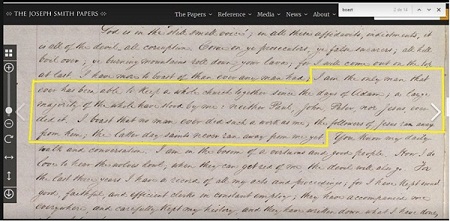 THE JOSEPH SMITH PAPERS The Papers Reference Media News About boast 2 of 14
God is in the still small voice; in all these affidavits, indictments, it
is all of the devil, all corruption. Come on ye prosecutors, ye false swearers, all hell
boil over, ye burning mountains roll down your lava; for I will come out on the top
at last. I have more to boast of than ever any man had. I am the only man that
ever has been able to keep a whole church together since the days of Adam; a large
majority of the whole have stood by me: neither Paul, John, Peter nor Jesus ever
did it. I boast that no man ever did such a work as me; the followers of Jesus ran away
from him; the latter day saints never ran away from me yet. You know my daily
walk and conversation. I am in the bosom of a virtuous and good people. How I do
love to hear the wolves howl, when they can get rid of me the devil will also go. For
the last three years I have a record of all my acts and proceedings; for I have kept several
good, faithful, and efficient clerks in constant employ; they have accompanied me
everywhere, and carefully kept my history, and they have written down what I have done,